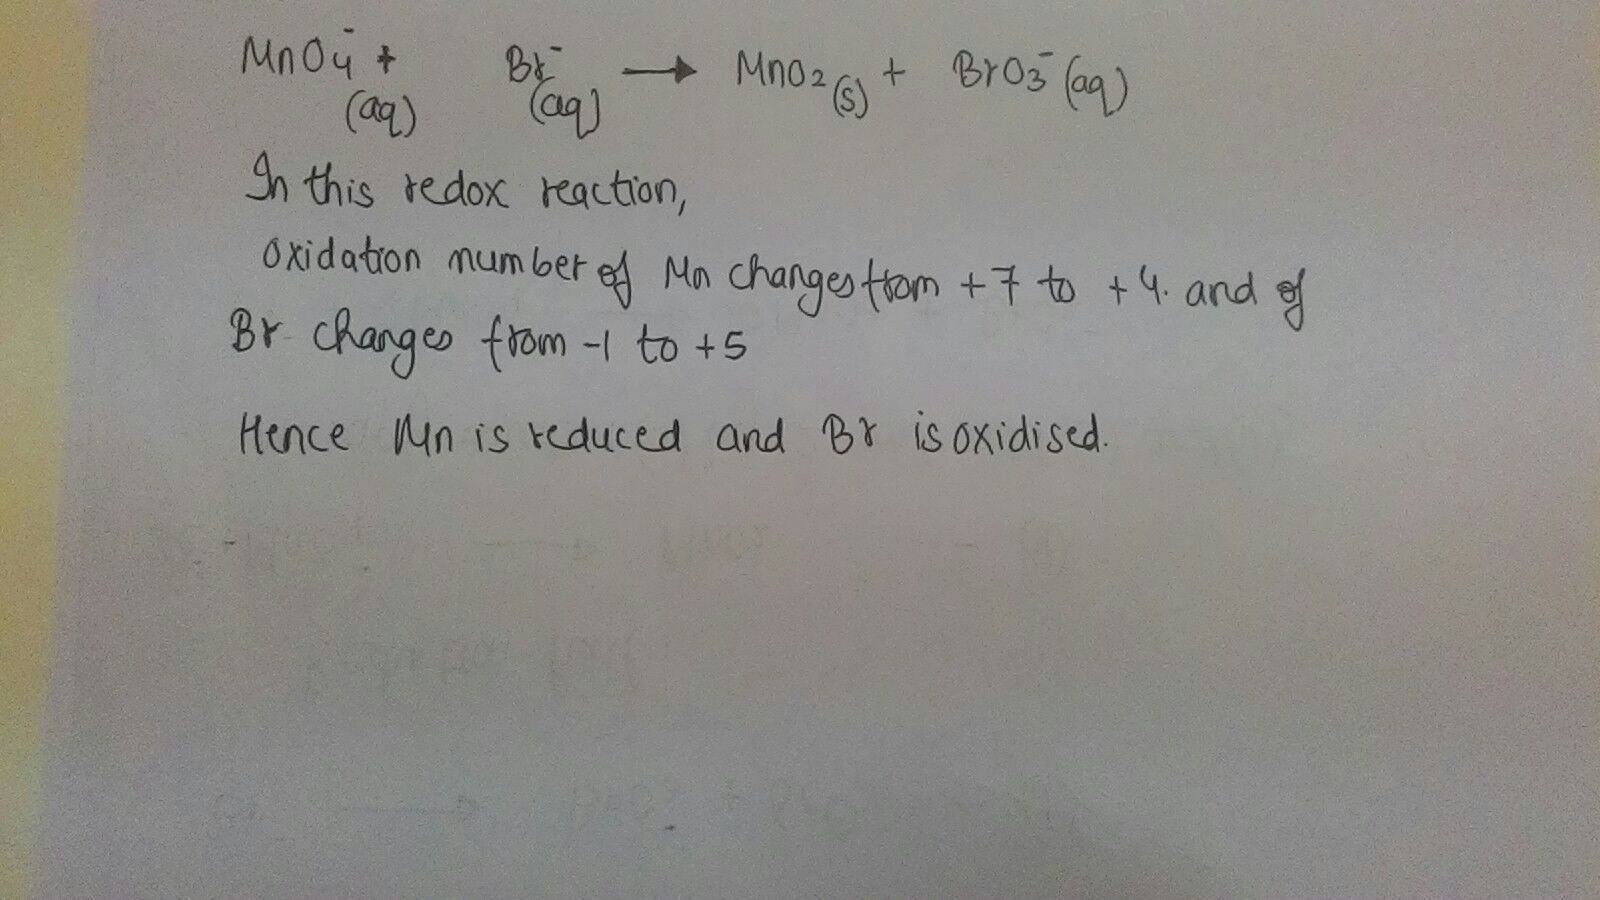 MnO4⁻ (aq) + Br⁻ (aq) → MnO2 (s) + BrO3⁻ (aq)
In this redox reaction,
oxidation number of Mn changes from +7 to +4. and of
Br changes from -1 to +5
Hence Mn is reduced and Br is oxidised.